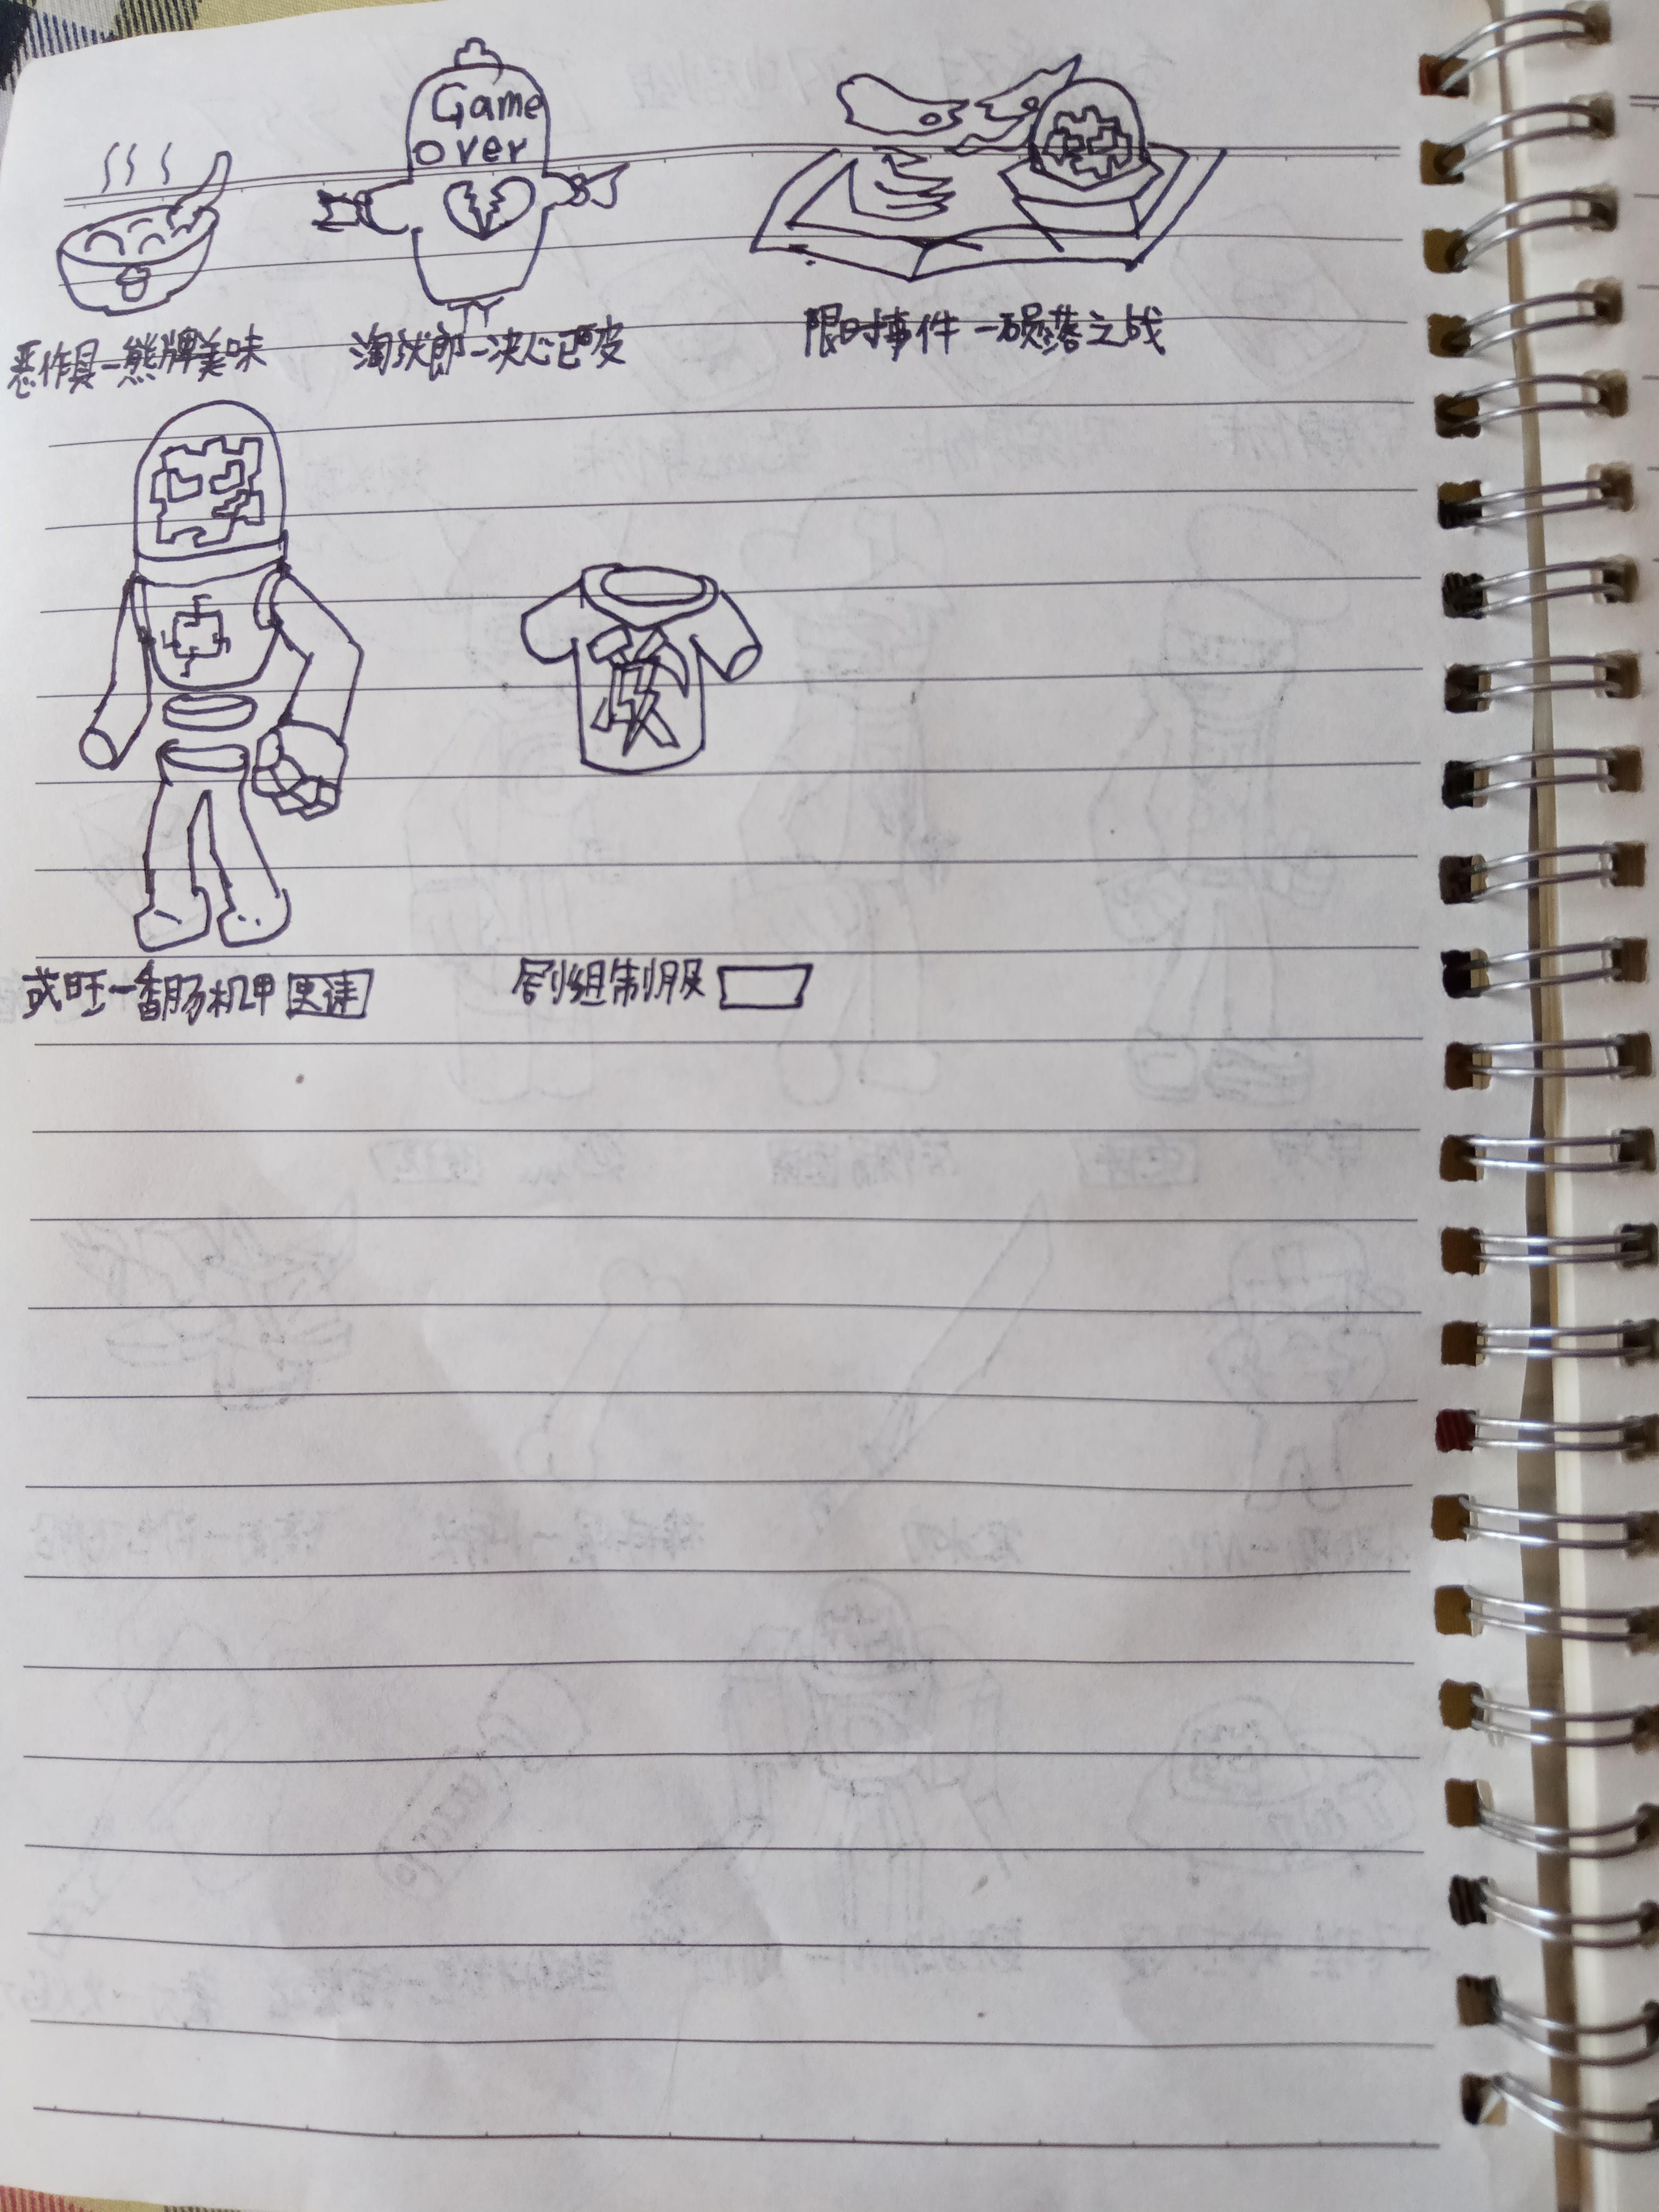 Game
over
恶作具-熊牌美味
淘汰郎-决心已皮
限时事件-陨落之战
或旺-香肠机甲
剧组制服